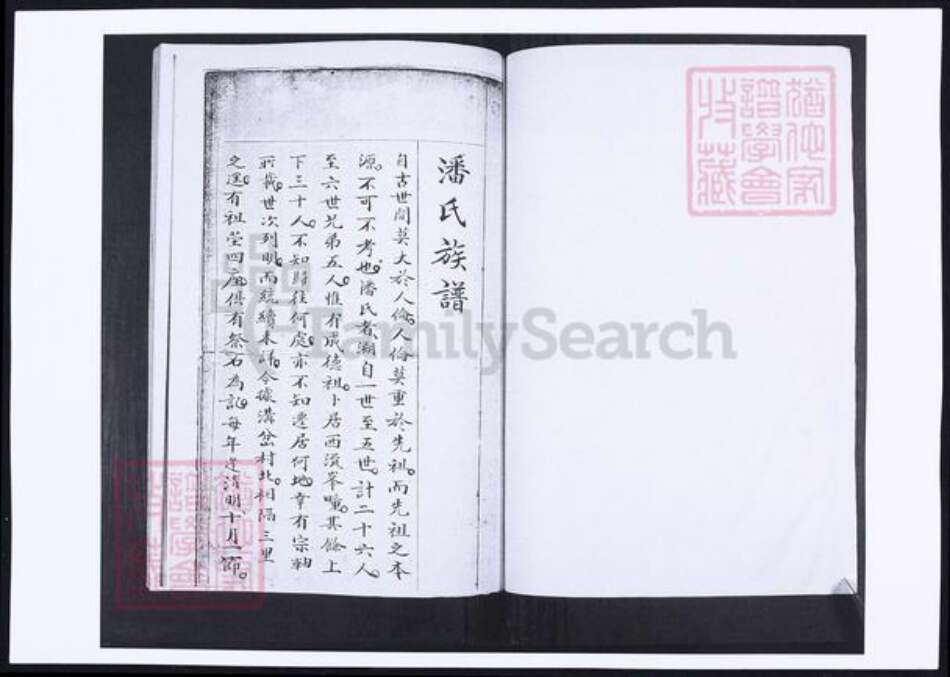 潘氏族譜
自古世間莫大於人倫人倫莫重於先祖而先祖之本
源不可不考也潘氏者溯自一世至五世計二十六人
至六世兄弟五人惟有成德祖卜居西流峯疃其餘上
下三十人不知時往何處亦不知遷居何地幸有宗軸
所載世次列明而統緒未詳今據溝岔村北相隔三里
之遙有祖塋四座俱有祭石為記每年逢清明十月一節
猶他家
譜學會
收藏
FamilySearch